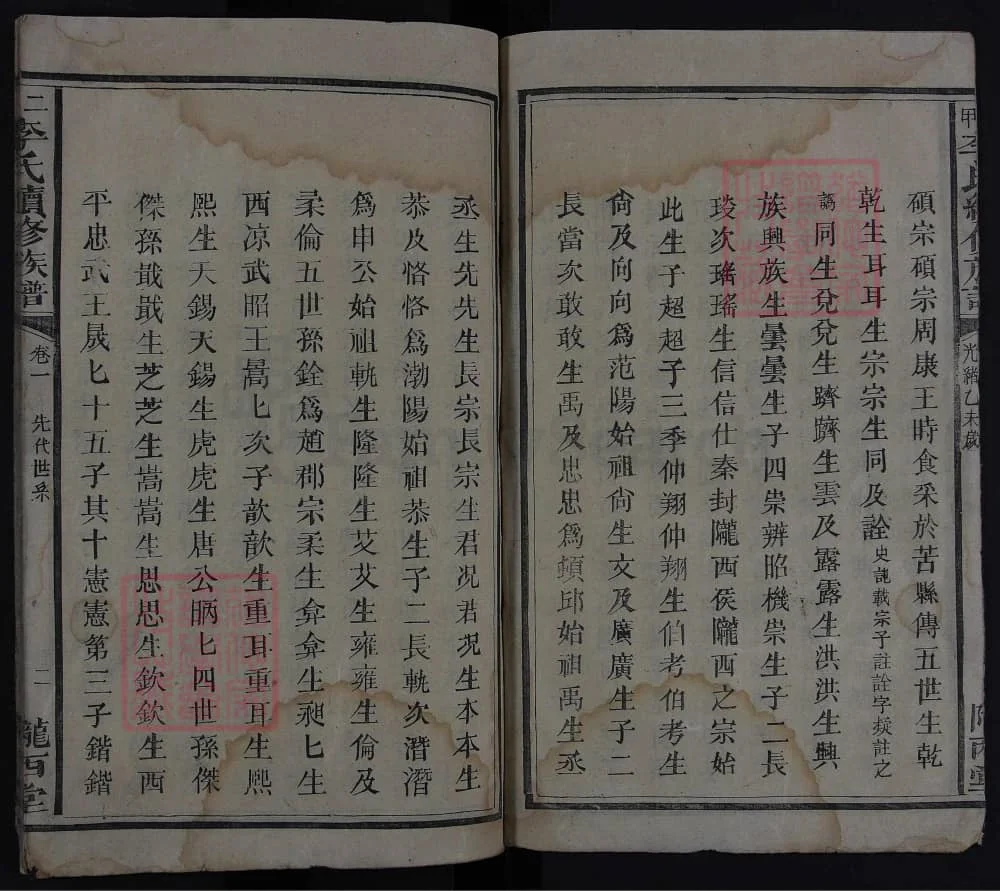 甲 李氏續修族譜 光緒乙未歲 隴西堂
碩宗碩宗周康王時食采於苦縣傳五世生乾
乾生耳耳生宗宗生同及詮史記載宗子註詮字擬註之
譌同生兌兌生躋躋生雲及露露生洪洪生興
族興族生曇曇生子四崇辨昭機崇生子二長
㻛次瑤瑤生信信仕秦封隴西侯隴西之宗始
此生子超超子三季仲翔仲翔生伯考伯考生
尙及向向爲范陽始祖尙生文及廣廣生子二
長當次敢敢生禹及忠忠爲頓邱始祖禹生丞
丞生先先生長宗長宗生君况君况生本本生
恭及恪恪爲渤陽始祖恭生子二長軌次潛潛
爲申公始祖軌生隆隆生艾艾生雍雍生倫及
柔倫五世孫銓爲趙郡宗柔生弇弇生昶七生
西凉武昭王暠七次子歆歆生重耳重耳生熙
熙生天錫天錫生虎虎生唐公昞七四世孫傑
傑孫戢戢生芝芝生嵩嵩生思思生欽欽生西
平忠武王晟七十五子其十憲憲第三子鍇鍇
二 李氏續修族譜 卷一 先代世系 二 隴西堂